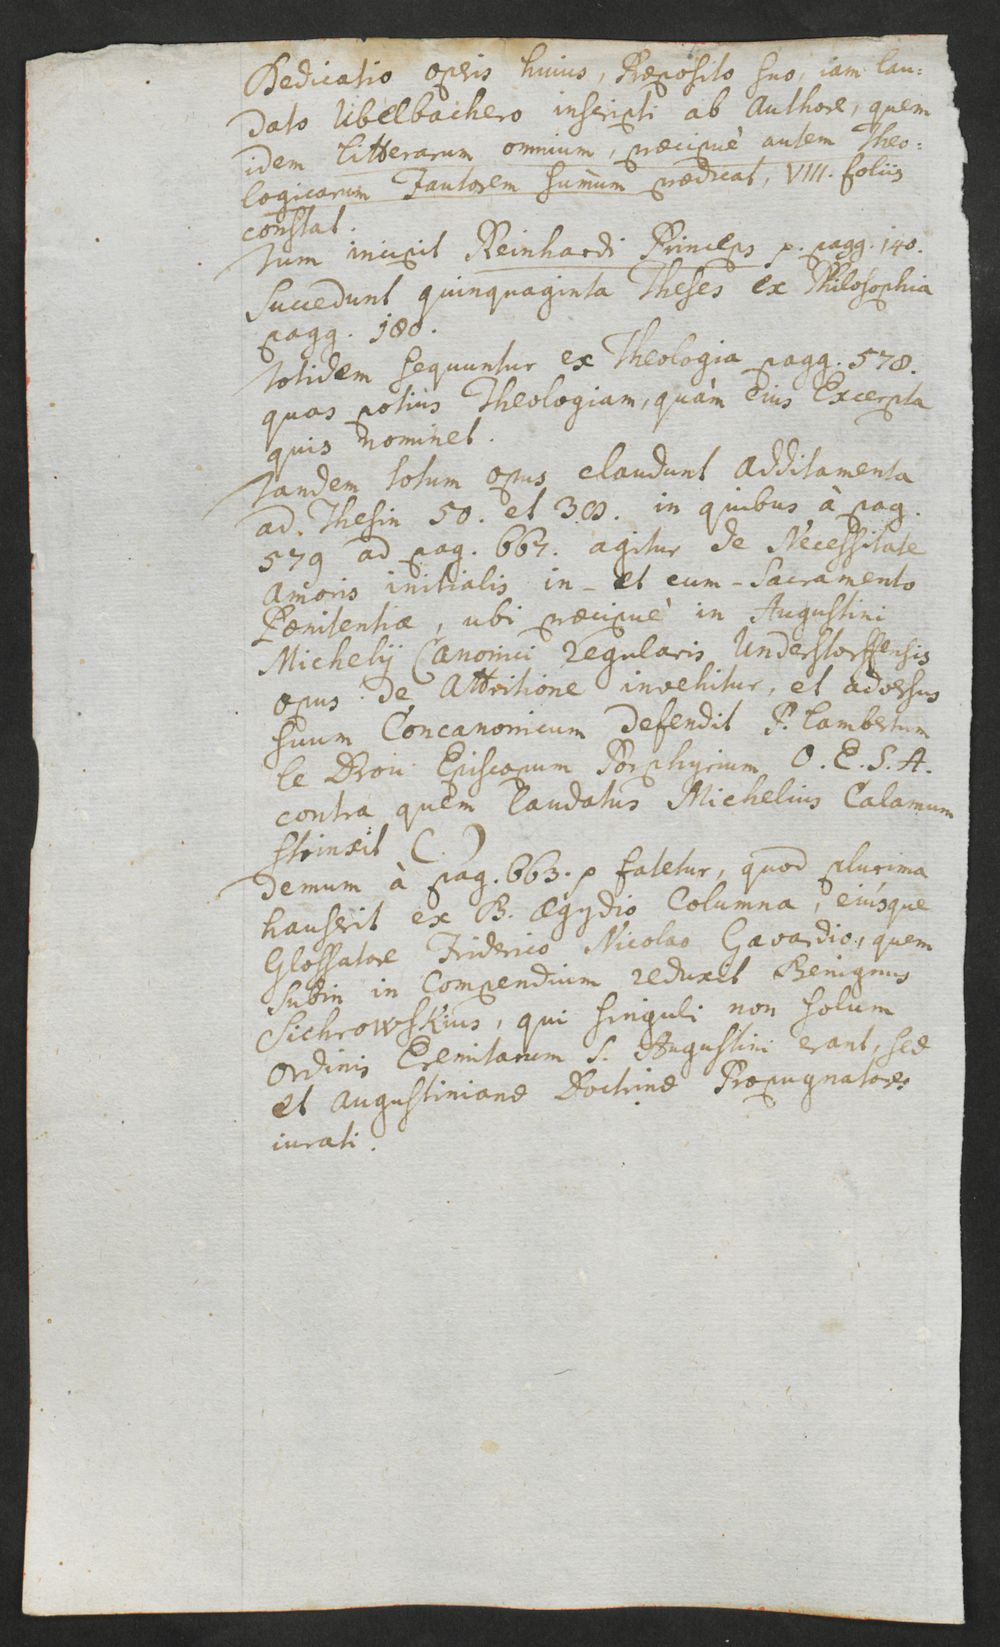 Dedicatio operis huius, Præposito suo, iam lau:
dato Ubelbachero inscripti ab Authore, quem
idem litterarum omnium, præcipuè autem Theo:
logicarum Fautorem summum prædicat, VIII. foliis
constat.
Tum incipit Reinhardi Princeps p. pagg. 140.
Succedunt quinquaginta Theses ex Philosophia
pagg. 180.
totidem sequuntur ex Theologia pagg. 578.
quas potius Theologiam, quàm eius Excerpta
quis nominet.
tandem totum opus claudunt Additamenta
ad Thesin 50. et 38. in quibus à pag.
579 ad pag. 667. agitur de Necessitate
Amoris initialis in- et cum-Sacramento
Pœnitentiæ, ubi præcipuè in Augustini
Michelij Canonici regularis Understorffensis
opus de Attritione invehitur, et adversus
suum Concanonicum defendit P. Lambertum
le Drou Episcopum Porphyrium O.E.S.A.
contra quem laudatus Michelius Calamum
strinxit (.)
demum à pag. 663. p fatetur, quod plurima
hauserit ex B. Ægydio Columna, eiúsque
Glossatore Friderico Nicolao Gavardio, quem
subin in Compendium reduxit Benignus
Sichrowskius, qui singuli non solum
Ordinis Eremitarum S. Augustini erant, sed
et Augustinianæ Doctrinæ Propugnatores
iurati.